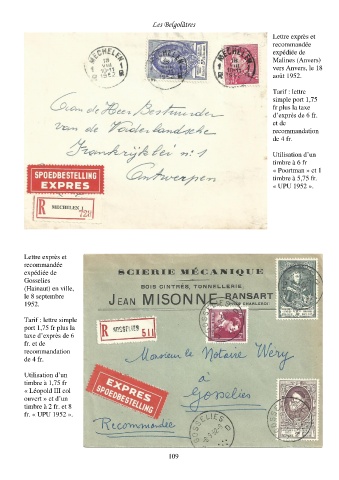 Les Belgolâtres
Lettre exprès et
recommandée
expédiée de
Malines (Anvers)
vers Anvers, le 18
août 1952.
Tarif : lettre
simple port 1,75
fr plus la taxe
d'exprès de 6 fr.
et de
recommandation
de 4 fr.
Utilisation d'un
timbre à 6 fr
« Poortman » et 1
timbre à 5,75 fr.
« UPU 1952 ».
MECHELEN
MECHELEN
de Heer Bestuurder
van de Vaderlandsche
Frankrijklei n: 1
Antwerpen
SPOEDBESTELLING
EXPRES
R
MECHELEN 1
720
Lettre exprès et
recommandée
expédiée de
Gosselies
(Hainaut) en ville,
le 8 septembre
1952.
Tarif : lettre simple
port 1,75 fr plus la
taxe d'exprès de 6
fr. et de
recommandation
de 4 fr.
Utilisation d'un
timbre à 1,75 fr
« Léopold III col
ouvert » et d'un
timbre à 2 fr. et 8
fr. « UPU 1952 ».
SCIERIE MÉCANIQUE
BOIS CINTRÉS, TONNELLERIE
JEAN MISONNE RANSART
R
GOSSELIES
511
Monsieur le Notaire Wéry
à
Gosselies
EXPRES
SPOEDBESTELLING
Recommandée
GOSSELIES
109